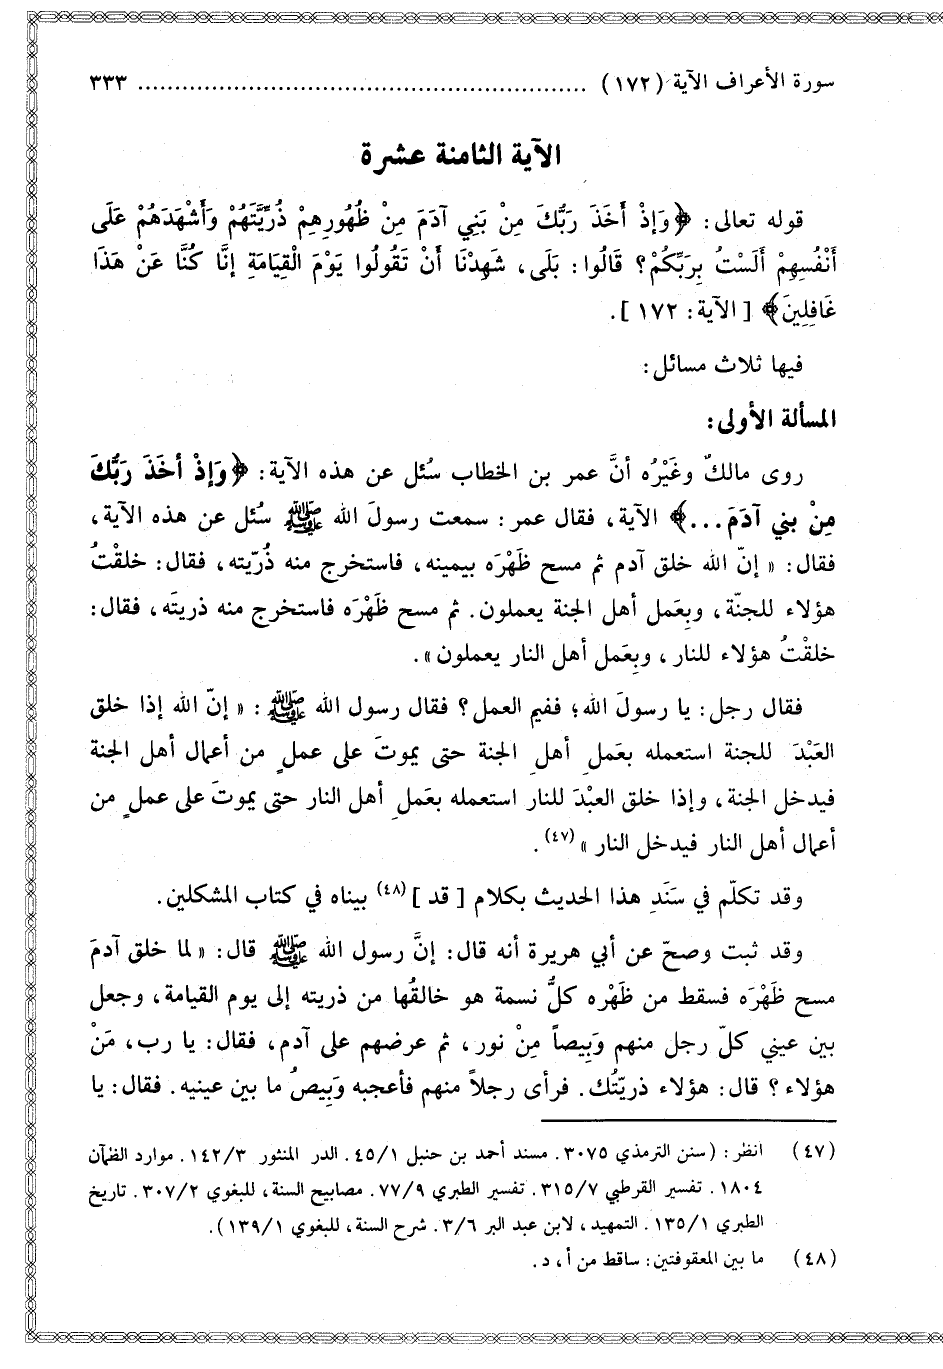 سورة الأعراف الآية (١٧٢) ............................................................ ٣٣٣
الآية الثامنة عشرة
قوله تعالى: ﴿وَإِذْ أَخَذَ رَبُّكَ مِنْ بَنِي آدَمَ مِنْ ظُهُورِهِمْ ذُرِّيَّتَهُمْ وَأَشْهَدَهُمْ عَلَى
أَنْفُسِهِمْ أَلَسْتُ بِرَبِّكُمْ؟ قَالُوا: بَلَى، شَهِدْنَا أَنْ تَقُولُوا يَوْمَ الْقِيَامَةِ إِنَّا كُنَّا عَنْ هَذَا
غَافِلِينَ﴾ [الآية: ١٧٢].
فيها ثلاث مسائل:
المسألة الأولى:
روى مالكٌ وغَيْرُه أنَّ عمر بن الخطاب سُئل عن هذه الآية: ﴿وَإِذْ أَخَذَ رَبُّكَ
مِنْ بني آدَمَ...﴾ الآية، فقال عمر: سمعت رسولَ الله ﷺ سُئل عن هذه الآية،
فقال: « إنّ الله خلق آدم ثم مسح ظَهْرَه بيمينه، فاستخرج منه ذُرّيته، فقال: خلقْتُ
هؤلاء للجنّة، وبِعَمل أهل الجنة يعملون. ثم مسح ظَهْرَه فاستخرج منه ذريتَه، فقال:
خلقْتُ هؤلاء للنار، وبِعَمل أهل النار يعملون».
فقال رجل: يا رسولَ الله؛ ففيم العمل؟ فقال رسول الله ﷺ: « إنّ الله إذا خلق
العَبْدَ للجنة استعمله بعَملِ أهلِ الجنة حتى يموتَ على عملٍ من أعمال أهل الجنة
فيدخل الجنة، وإذا خلق العبْدَ للنار استعمله بعَملِ أهل النار حتى يموتَ على عملٍ من
أعمال أهل النار فيدخل النار »(٤٧).
وقد تكلّم في سَنَدِ هذا الحديث بكلام [قد](٤٨) بيناه في كتاب المشكلين.
وقد ثبت وصحّ عن أبي هريرة أنه قال: إنَّ رسول الله ﷺ قال: « لما خلق آدمَ
مسح ظَهْرَه فسقط من ظَهْره كلُّ نسمة هو خالقُها من ذريته إلى يوم القيامة، وجعل
بين عيني كلّ رجل منهم وَبِيصاً مِنْ نور، ثم عرضهم على آدم، فقال: يا رب، مَنْ
هؤلاء؟ قال: هؤلاء ذريّتُك. فرأى رجلاً منهم فأعجبه وَبِيصُ ما بين عينيه. فقال: يا
(٤٧) انظر: (سنن الترمذي ٣٠٧٥. مسند أحمد بن حنبل ٤٥/١. الدر المنثور ١٤٢/٣. موارد الظمآن
١٨٠٤. تفسير القرطبي ٣١٥/٧. تفسير الطبري ٧٧/٩. مصابيح السنة، للبغوي ٣٠٧/٢. تاريخ
الطبري ١٣٥/١. التمهيد، لابن عبد البر ٣/٦. شرح السنة، للبغوي ١٣٩/١).
(٤٨) ما بين المعقوفتين: ساقط من أ، د.